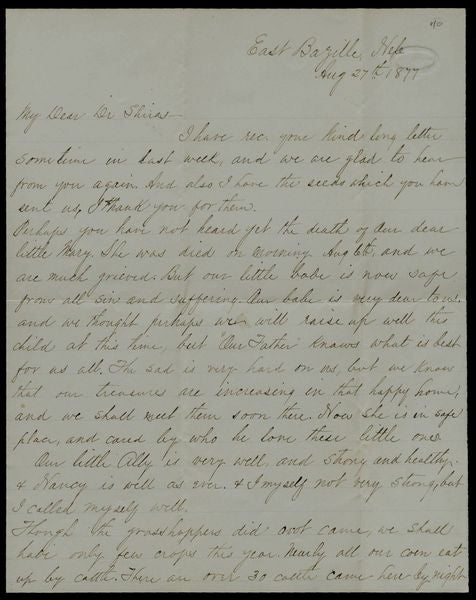 40
East Bazille, Neb
Aug 27th 1877
My Dear Dr Shiras
I have rec. your kind long letter
sometime in last week, and we are glad to hear
from you again. And also I have the seeds which you have
sent us, I thank you for them.
Perhaps you have not heard yet the death of our dear
little Mary. She was died on morning Aug 6th, and we
are much grieved. But our little babe is now safe
from all sin and suffering. Our babe is very dear to us.
and we thought perhaps we will raise up well this
child at this time, but "Our Father" knows what is best
for us all. The sad is very hard on us, but we know
that our treasures are increasing in that happy home,
and we shall meet them soon there. Now she is in safe
place, and cared by who he love these little ones
Our little Ally is very well, and strong and healthy.
& Nancy is well as ever. & I myself not very strong, but
I called myself well.
Though the grasshoppers did not came, we shall
have only few crops this year. Nearly all our corn eat
up by cattle. There are over 30 cattle came here by night